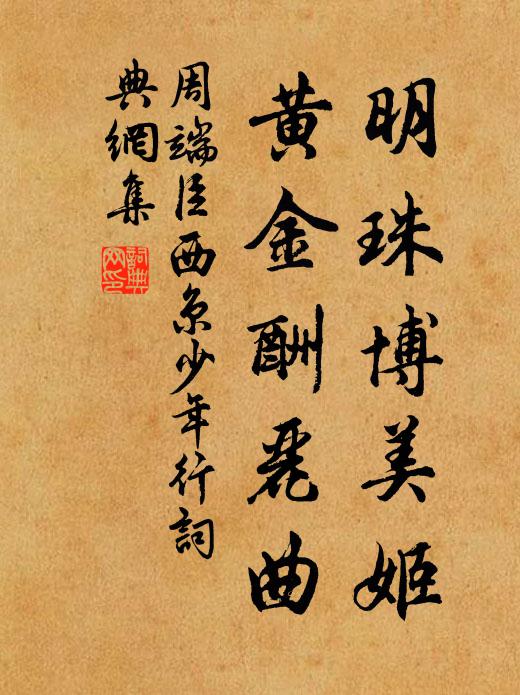 明珠博美姬
黄金酬丽曲
周端臣西京少年行詞
典網集
詞典网印